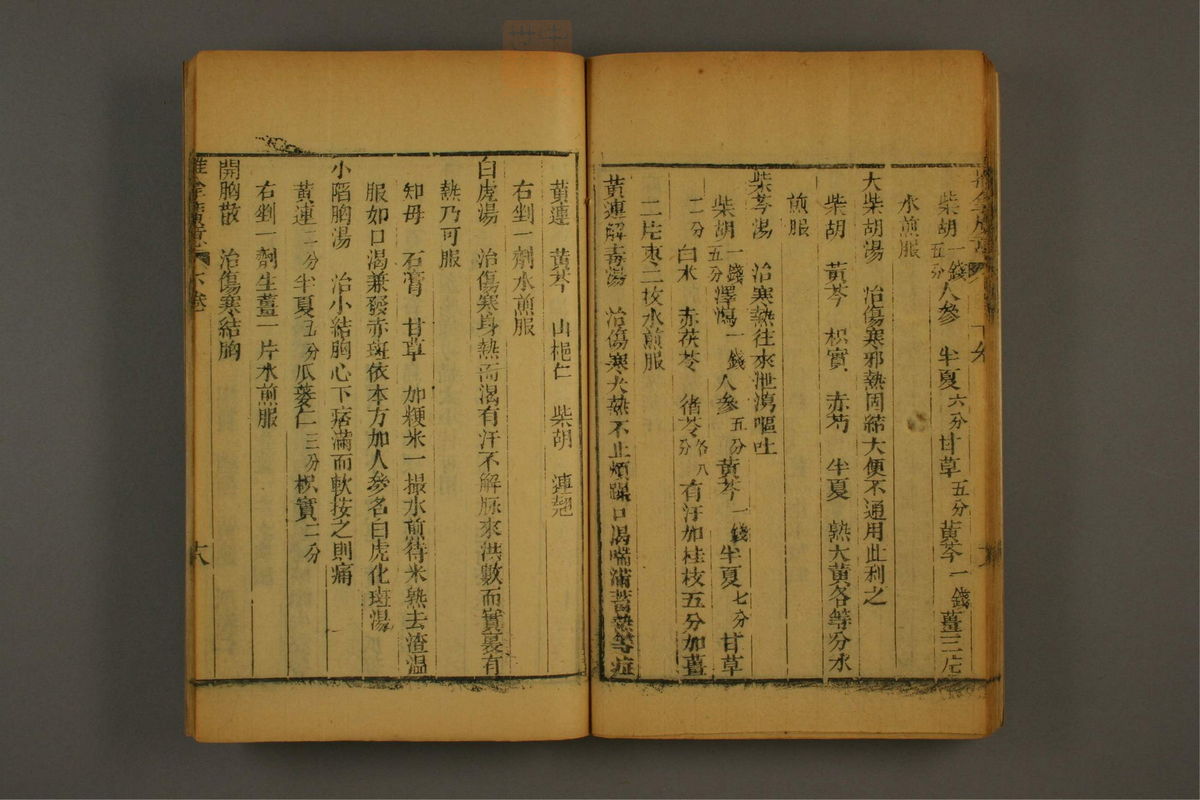 柴胡一錢五分人參 半夏六分甘草五分黃芩一錢薑三片
水煎服
大柴胡湯 治傷寒邪熱固結大便不通用此利之
柴胡 黃芩 枳實 赤芍 半夏 熟大黃各等分水
煎服
柴苓湯 治寒熱往來泄瀉嘔吐
柴胡一錢五分澤瀉一錢人參五分黃芩一錢半夏七分甘草
二分白朮 赤茯苓 猪苓各八分有汗加桂枝五分加薑
二片枣二枚水煎服
黃連解毒湯 治傷寒大熱不止煩躁口渴喘滿蓄熱等症
黃連 黃芩 山梔仁 柴胡 連翹
右剉一劑水煎服
白虎湯 治傷寒身熱而渴有汗不解脈來洪數而實裏有
熱乃可服
知母 石膏 甘草 加粳米一撮水煎待米熟去渣温
服如口渴兼發赤斑依本方加人參名白虎化斑湯
小陷胸湯 治小結胸心下痞滿而軟按之則痛
黃連二分半夏五分瓜蔞仁三分枳實二分
右剉一劑生薑一片水煎服
開胸散 治傷寒結胸
下卷
六